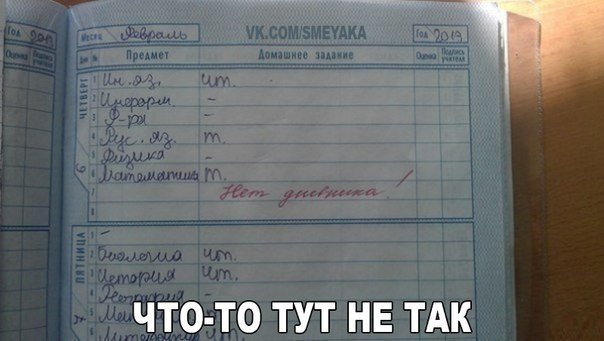 Месяц Февраль
VK.COM/SMEYAKA
Год 2019
Год 2019
Оценка Подпись учителя
Дни № Предмет Домашнее задание Оценка Подпись учителя
ЧЕТВЕРГ
1 Ин. яз. чт.
2 Информ -
3 Ф-ра -
4 Рус. яз. т.
5 Физика -
6 Математика т.
7 Нет дневника!
8
6
ПЯТНИЦА
1 -
2 Биология чт.
3 История чт.
4 География -
5
6 Литература чт.
ЧТО-ТО ТУТ НЕ ТАК